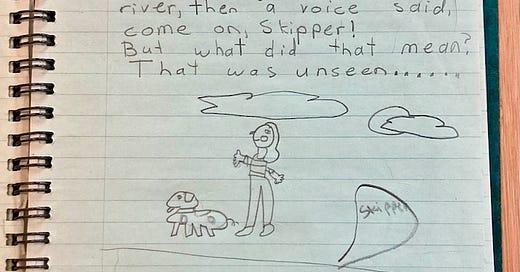 river, then a voice said,
come on, Skipper!
But what did that mean?
That was unseen......
skipper